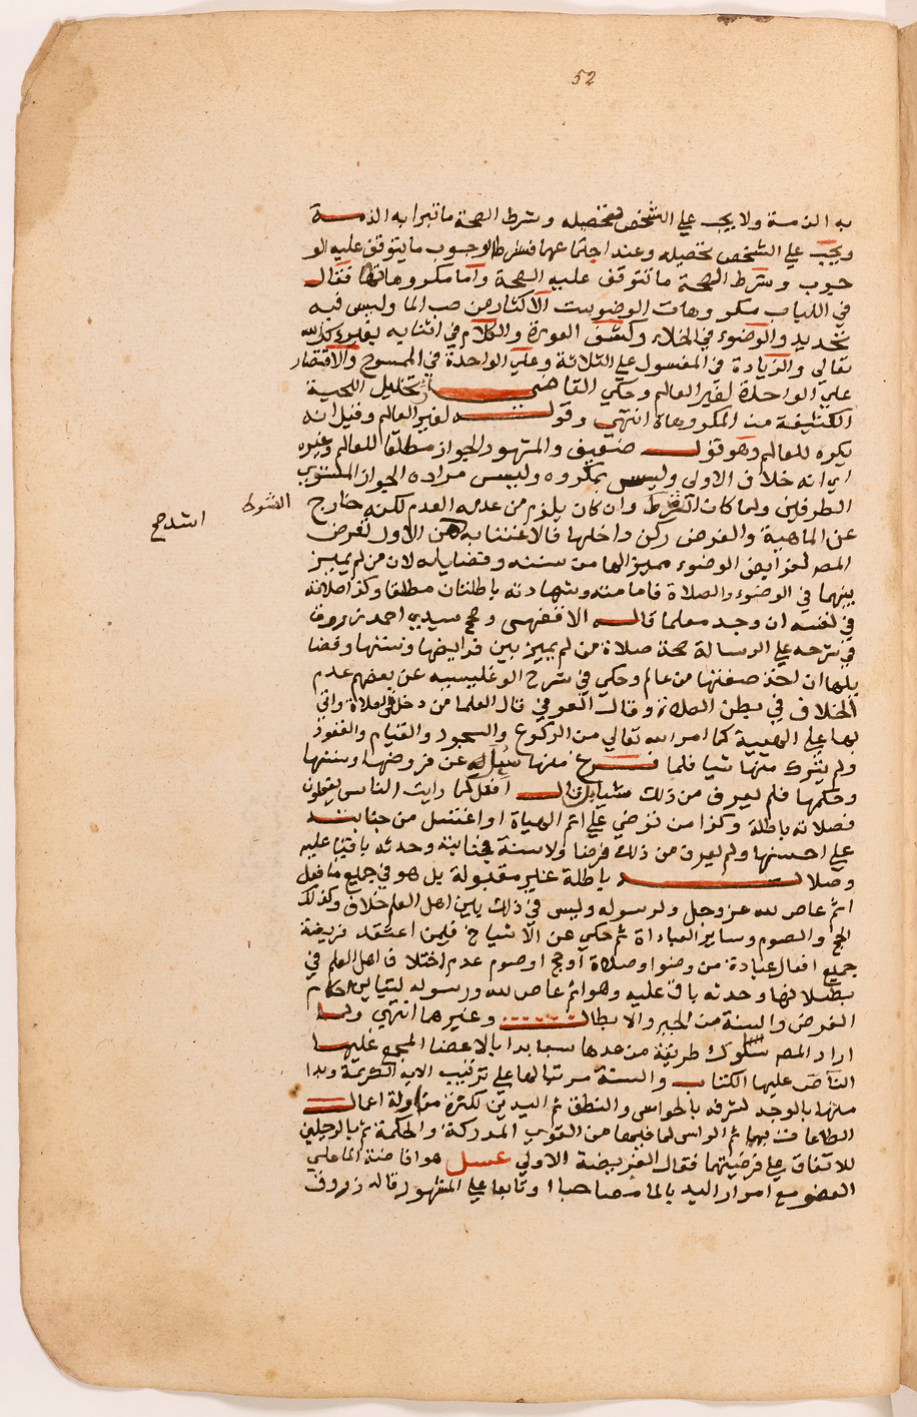 52
به الذمة ولا يجب علي الشخص تحصيله وشرط الصحة ما تبرا به الذمة
ويجب علي الشخص تحصيله وعند اجتماعهما فشرط الوجوب ما يتوقف عليه الو
جوب وشرط الصحة ما تتوقف عليه الصحة واما مكروهاتها فقال
في اللباب مكروهات الوضو ست الاكثار من صب الما وليس فيه
تحديد والوضوء في الخلاء وكشف العورة والكلام في اثنايه بغير ذكر الله
تعالي والزيادة في المغسول علي الثلاثة وعلي الواحدة في الممسوح والاقتصار
علي الواحدة لغير العالم وحكي القاضي تخليل اللحية
الكثيفة من المكروهات انتهي وقوله لغير العالم وقيل انه
يكره للعالم وهو قول ضعيف والمشهور الجواز مطلقا للعالم وغيره
اي انه خلاف الاولي وليس بمكروه وليس مراده الجواز المستوي
الطرفين ولما كان الشرط وان كان يلزم من عدمه العدم لكنه خارج
الشروط
اشد صح
عن الماهية والفرض ركن داخلها فالاعتنا به من الاول لفرض
المصـ لفرايض الوضوء مميزا لها من سننه وفضايله لان من لم يميز
بينهما في الوضوء والصلاة فامامته وشهادته باطلتان مطلقا وكذا صلاته
في نفسه ان وجد معلما قاله الاقفهسي وصحح سيدي احمد زروق
في شرحه علي الرسالة صحة صلاة من لم يميز بين فرايضها وسننها وفضا
يلها ان اخذ صفتها من عالم وحكي في شرح الوغليسية عن بعضهم عدم
الخلاف في بطن الصلاة وقال العوفي قال العلما من دخل في الصلاة واتي
بها علي الهيية كما امر الله تعالي من الركوع والسجود والقيام والقعود
ولم يترك منها شيا فلما فرغ منها سيل عن فروضها وسننها
وحكمها فلم يعرف من ذلك شيا بل قال افعل كما رايت الناس يفعلون
فصلاته باطلة وكذا من توضي علي اتم الهياة او اغتسل من جنابته
علي احسنها ولم يعرف من ذلك فرضا ولا سنة فجنابته وحدثه باقيا عليه
وصلاته باطلة غير مقبولة بل هو في جميع ما فعل
اثم عاص لله عز وجل ولرسوله وليس في ذلك بين اهل العلم خلاف وكذلك
الحج والصوم وساير العباداة ثم حكي عن الاشياخ فيمن اعتقد فريضة
جميع افعال عبادة من وضوا وصلاة او حج او صوم عدم اختلاف اهل العلم في
بطلانها وحدثه باق عليه وهو اثم عاص لله ورسوله لتباين احكام
الفرض والسنة من الجبر والابطال وغيرهما انتهي ولما
اراد المصـ سلوك طريقة من عدها سبعا بدا بالاعضا المجمع عليها
الناص عليها الكتاب والسنة مرتبا لها علي ترتيب الاية الكريمة وبدا
منها بالوجه لشرفه بالحواس والنطق ثم اليدين لكثرة مزاولة اعمال
الطاعات بهما ثم الراس لما فيها من القوي المدركة والحكمة ثم بالرجلين
للاتفاق علي فرضيتهما فقال الفريضة الاولي غسل هو افاضة الما علي
العضو مع امرار اليد بالما مصاحبا او تابعا علي المشهور قاله زروق